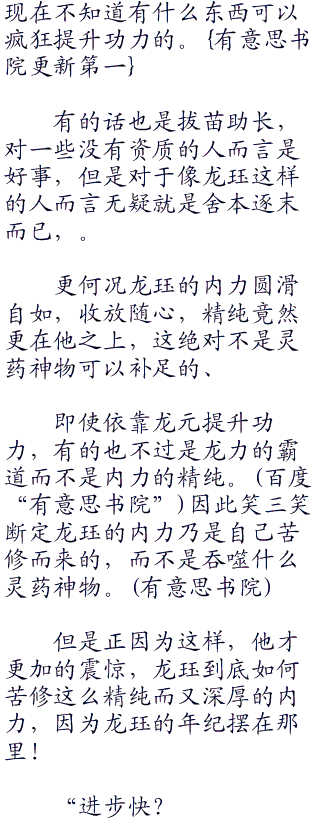 现在不知道有什么东西可以
疯狂提升功力的。{有意思书
院更新第一}
有的话也是拔苗助长，
对一些没有资质的人而言是
好事，但是对于像龙珏这样
的人而言无疑就是舍本逐末
而已，。
更何况龙珏的内力圆滑
自如，收放随心，精纯竟然
更在他之上，这绝对不是灵
药神物可以补足的、
即使依靠龙元提升功
力，有的也不过是龙力的霸
道而不是内力的精纯。(百度
“有意思书院”)因此笑三笑
断定龙珏的内力乃是自己苦
修而来的，而不是吞噬什么
灵药神物。(有意思书院)
但是正因为这样，他才
更加的震惊，龙珏到底如何
苦修这么精纯而又深厚的内
力，因为龙珏的年纪摆在那
里！
“进步快？